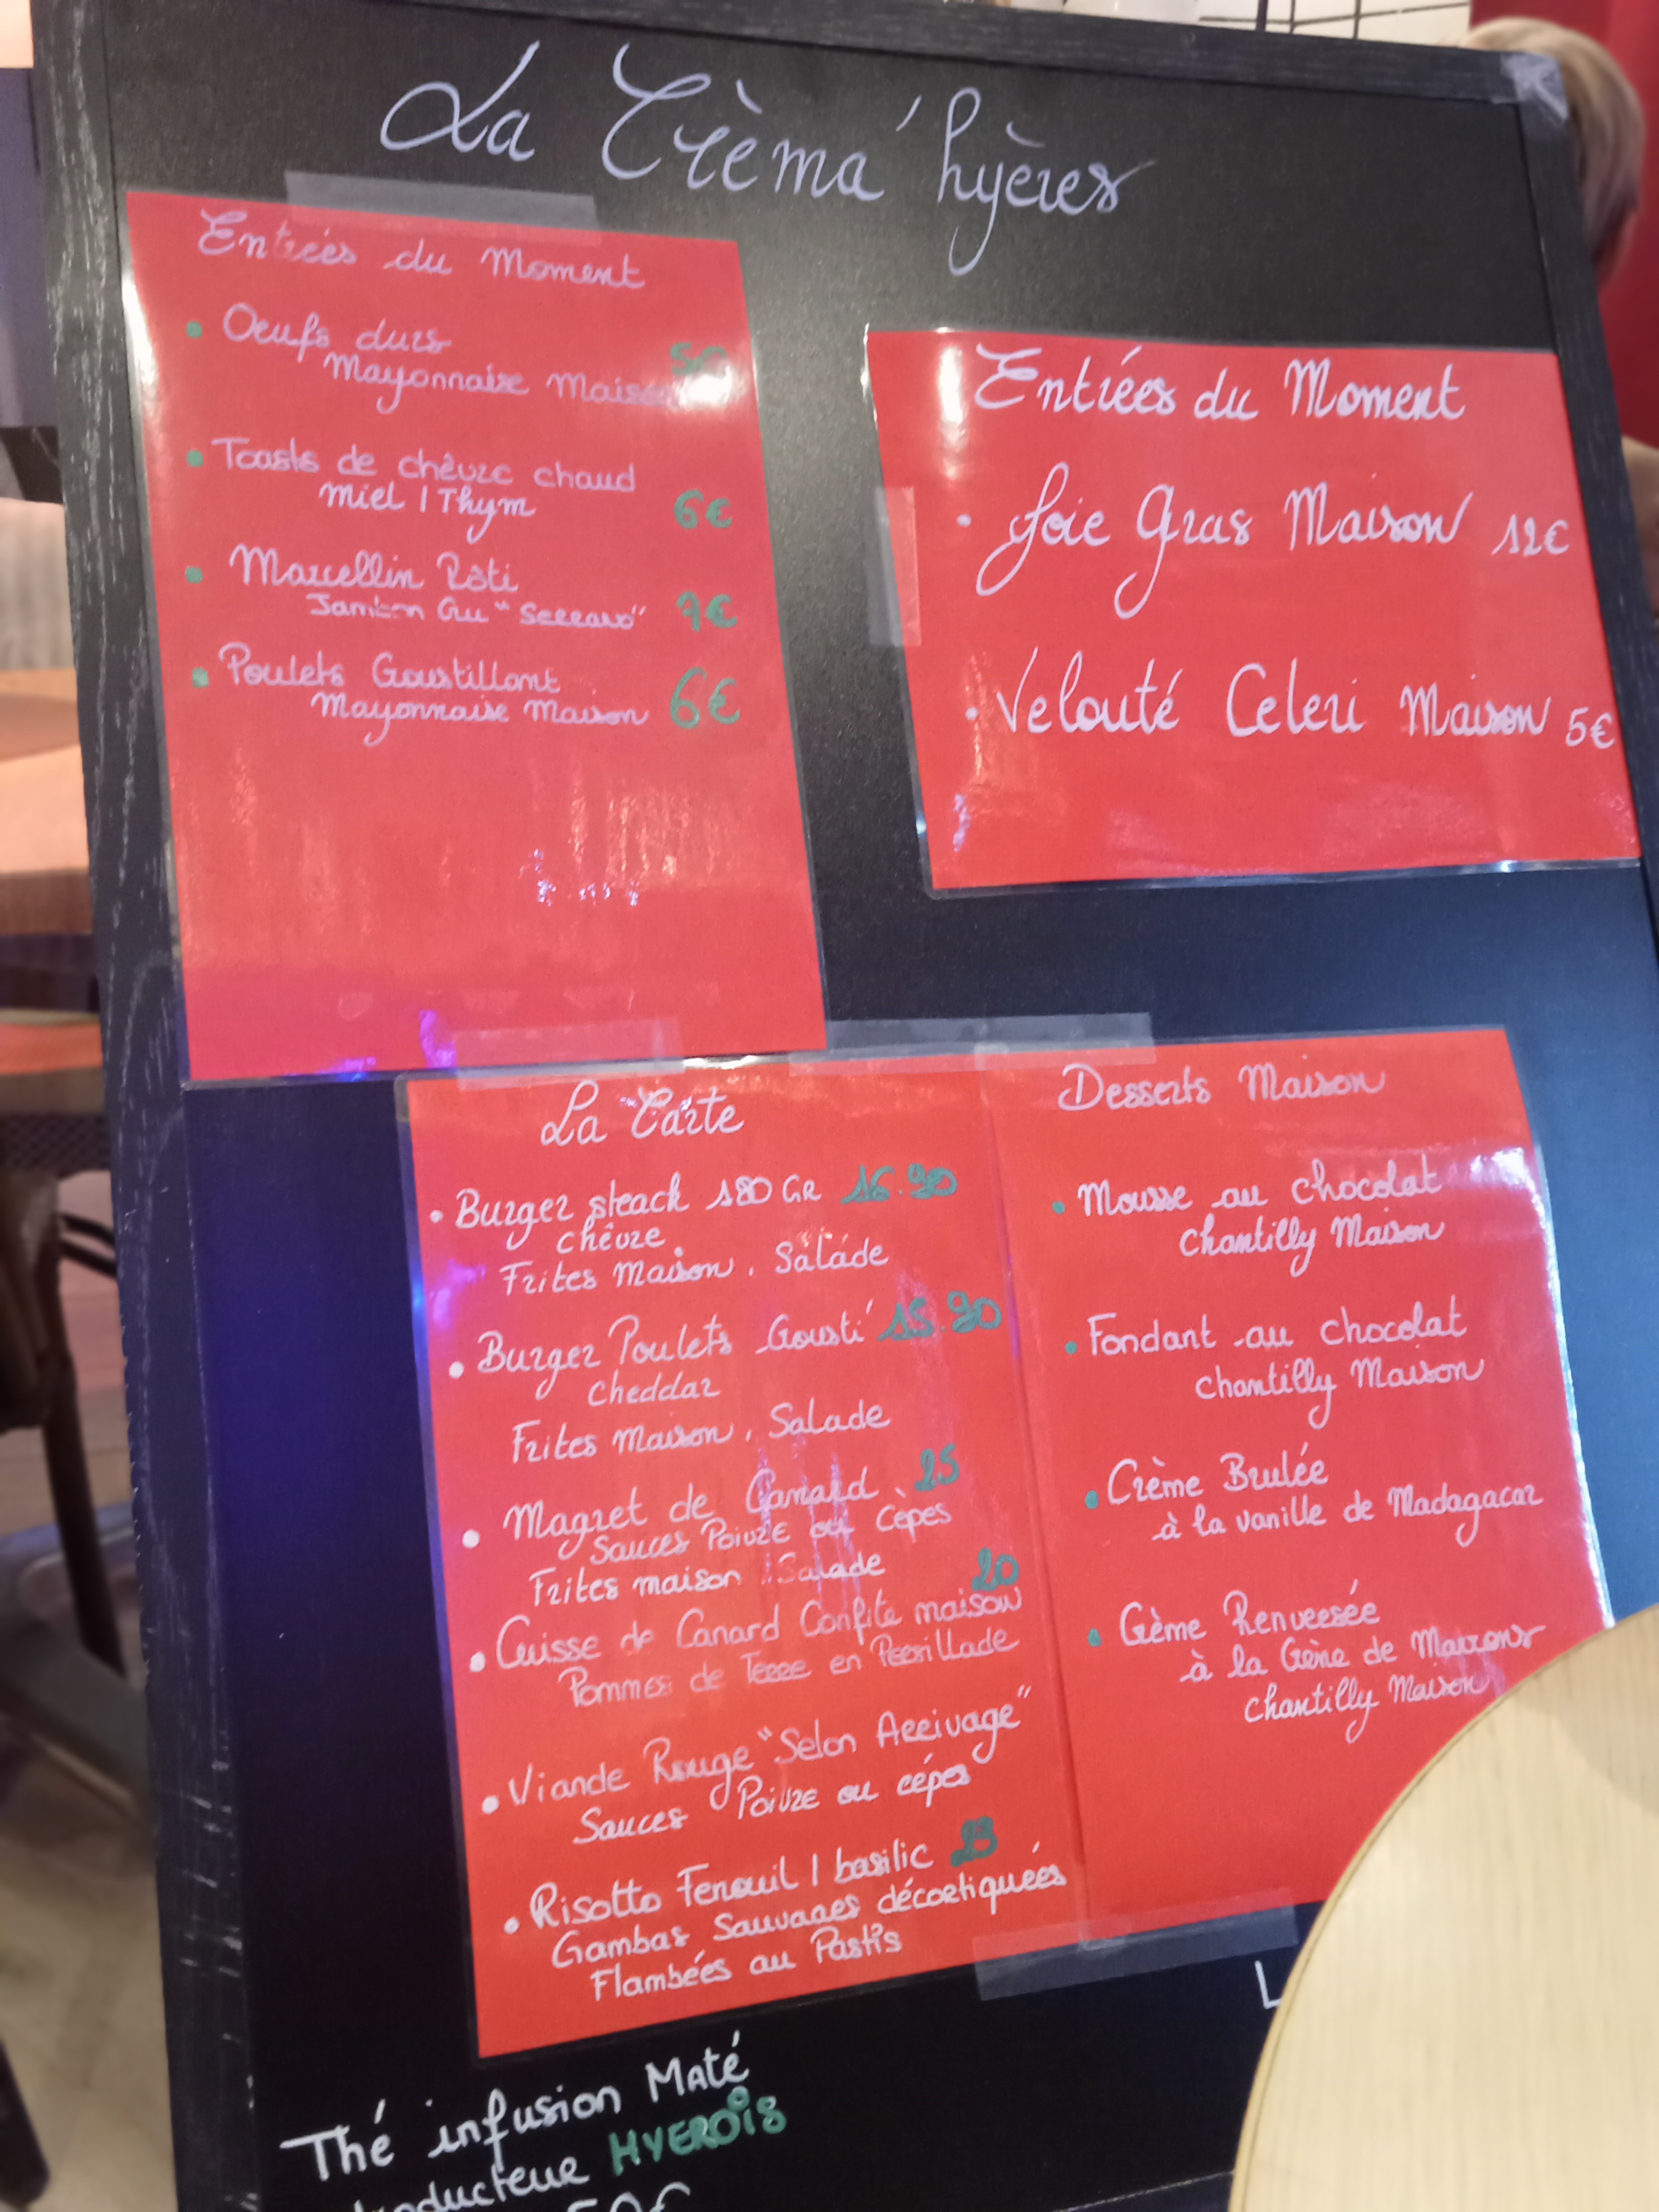 La Crèma'hyères
Entrées du Moment
• Oeufs durs
Mayonnaise Maison 5€
• Toasts de chèvre chaud
Miel / Thym 6€
• Marcellin Rôti
Jambon Cru "Serrano" 7€
• Poulets Croustillant
Mayonnaise Maison 6€
Entrées du Moment
• Foie Gras Maison 12€
• Velouté Celeri Maison 5€
La Carte
• Burger steack 180 GR 16.90
chèvre
Frites Maison, Salade
• Burger Poulets Crousti' 15.90
Cheddar
Frites Maison, Salade
• Magret de Canard 25
Sauces Poivre ou Cèpes
Frites maison, Salade
• Cuisse de Canard Confite maison 20
Pommes de Terre en Persillade
• Viande Rouge "Selon Arrivage"
Sauces Poivre ou cépes
• Risotto Fenouil / basilic 23
Gambas Sauvages décortiquées
Flambées au Pastis
Desserts Maison
• Mousse au chocolat
chantilly Maison
• Fondant au chocolat
chantilly Maison
• Crème Brulée
à la vanille de Madagacar
• Crème Renversée
à la Crème de Marrons
chantilly Maison
Thé infusion Maté
producteur HYEROIS